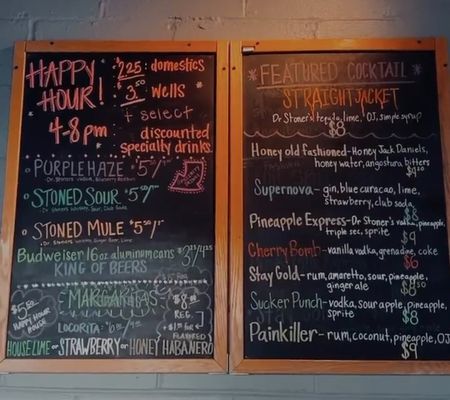 HAPPY HOUR!
4-8pm
$2.25: domestics
$3.50: wells
+ select
: discounted
specialty drinks
PURPLE HAZE $5
STONED SOUR $5
STONED MULE $5.50
Budweiser 16oz aluminum cans
KING OF BEERS
MARGARITAS
$5.50
HAPPY HOUR
HOUSE
LOCORITA
$8.00
REG.
FLAVORED
HOUSE LIME or STRAWBERRY or HONEY HABANERO
FEATURED COCKTAIL
STRAIGHTJACKET
Dr Stoner's tequila, lime, OJ, simple syrup
$8
Honey old fashioned - Honey Jack Daniels,
honey water, angostura bitters
Supernova - gin, blue curacao, lime,
strawberry, club soda
$8
Pineapple Express - Dr Stoner's vodka, pineapple,
triple sec, sprite
$9
Cherry Bomb - vanilla vodka, grenadine, coke
$6
Stay Gold - rum, amaretto, sour, pineapple,
ginger ale
$8.50
Sucker Punch - vodka, sour apple, pineapple,
sprite
$8
Painkiller - rum, coconut, pineapple, OJ
$9